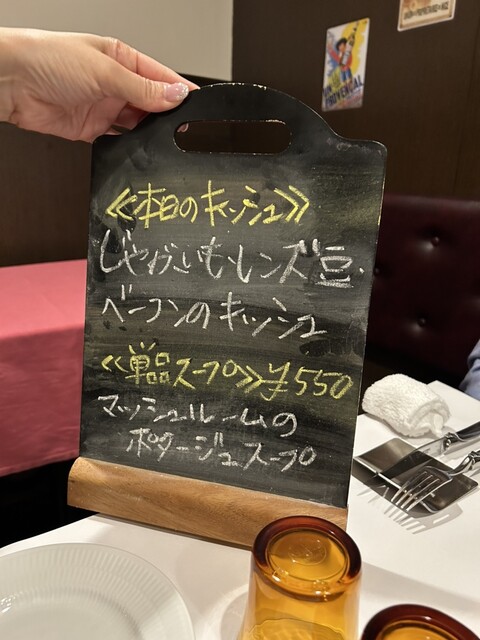 ≪本日のキッシュ≫
じゃがいも・レンズ豆・
ベーコンのキッシュ
≪単品スープ≫¥550
マッシュルームの
ポタージュスープ